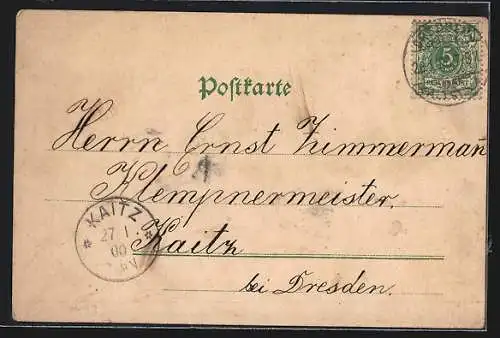 Postkarte
5
Herrn Ernst Zimmermann
Klempnermeister.
KAITZ
27 1
00
Kaitz
bei Dresden.